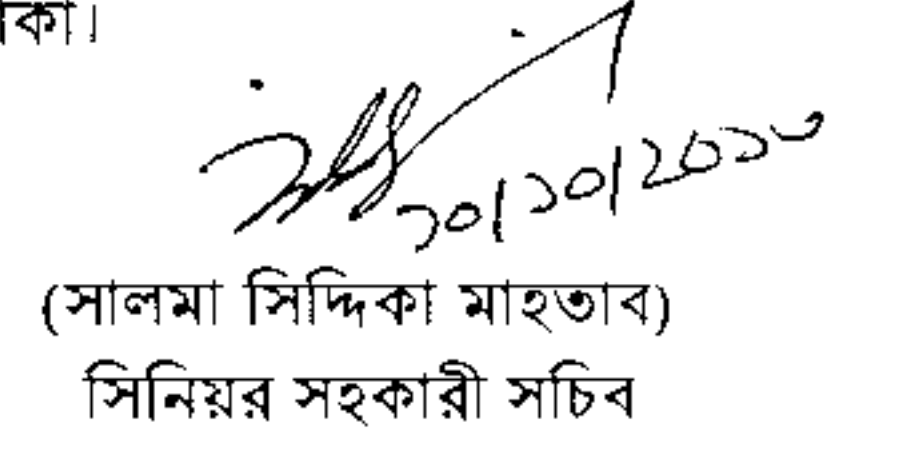 কা।
১০/১০/২০১৩
(সালমা সিদ্দিকা মাহতাব)
সিনিয়র সহকারী সচিব